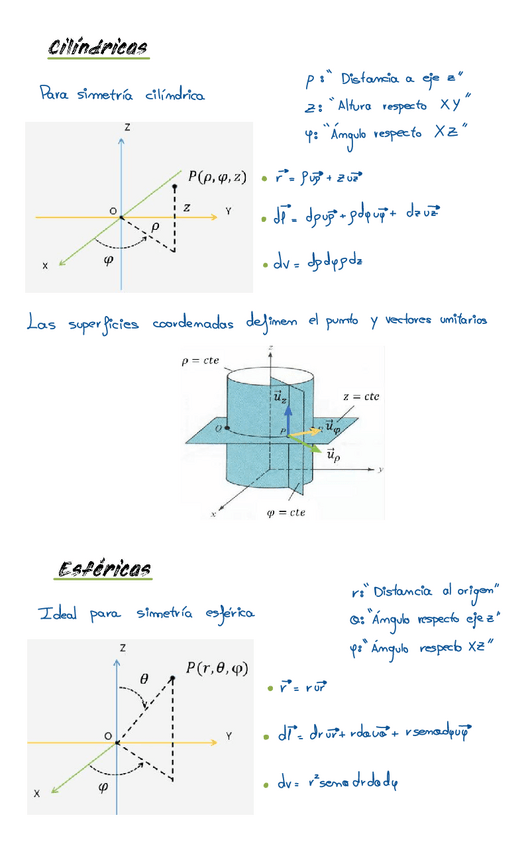 Cilíndricas
Para simetría cilíndrica
ρ: "Distancia a eje z"
z: "Altura respecto XY"
φ: "Ángulo respecto XZ"
Z
P(ρ, φ, z)
O
z
Y
ρ
X
φ
• r⃗ = ρ u⃗ρ + z u⃗z
• dl⃗ = dρ u⃗ρ + ρ dφ u⃗φ + dz u⃗z
• dv = dρ dφ ρ dz
Las superficies coordenadas definen el punto y vectores unitarios
z
ρ = cte
u⃗z
z = cte
Q
P
u⃗φ
u⃗ρ
y
x
φ = cte
Esféricas
Ideal para simetría esférica
r: "Distancia al origen"
θ: "Ángulo respecto eje z"
φ: "Ángulo respecto XZ"
Z
θ
P(r, θ, φ)
O
Y
X
φ
• r⃗ = r u⃗r
• dl⃗ = dr u⃗r + r dθ u⃗θ + r senθ dφ u⃗φ
• dv = r² senθ dr dθ dφ